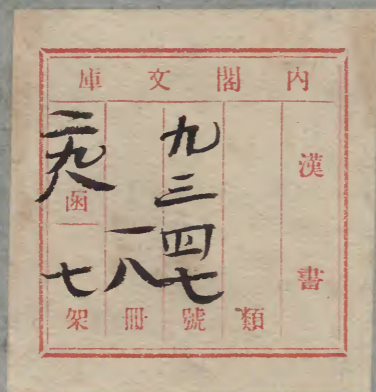 内閣文庫
漢書
類
九三四七號
一八冊
二九八函
七架